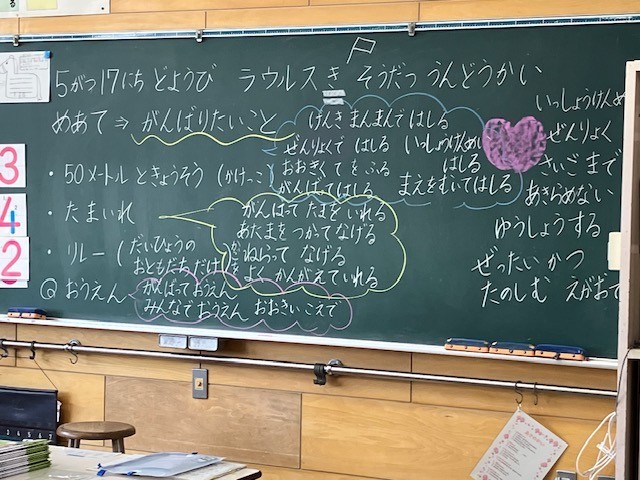 5がつ17にち どようび ラウルスき そうだつ うんどうかい
めあて⇒ がんばりたいこと
げんき まんまんで はしる
ぜんりょくで はしる いっしょうけんめい はしる
おおきくて をふる
がんばってはしる まえをむいてはしる
・50メートル ときょうそう (かけっこ)
・たまいれ
がんばって たまを いれる
あたまを つかって なげる
ねらって なげる
よく かんがえて いれる
・リレー (だいひょうの おともだちだけ)
◎ おうえん
がんばっておうえん
みんなでおうえん おおきいこえで
いっしょうけんめ
ぜんりょく
さいご まで
あきらめない
ゆうしょうする
ぜったい かつ
たのしむ えがおで
3
4
2